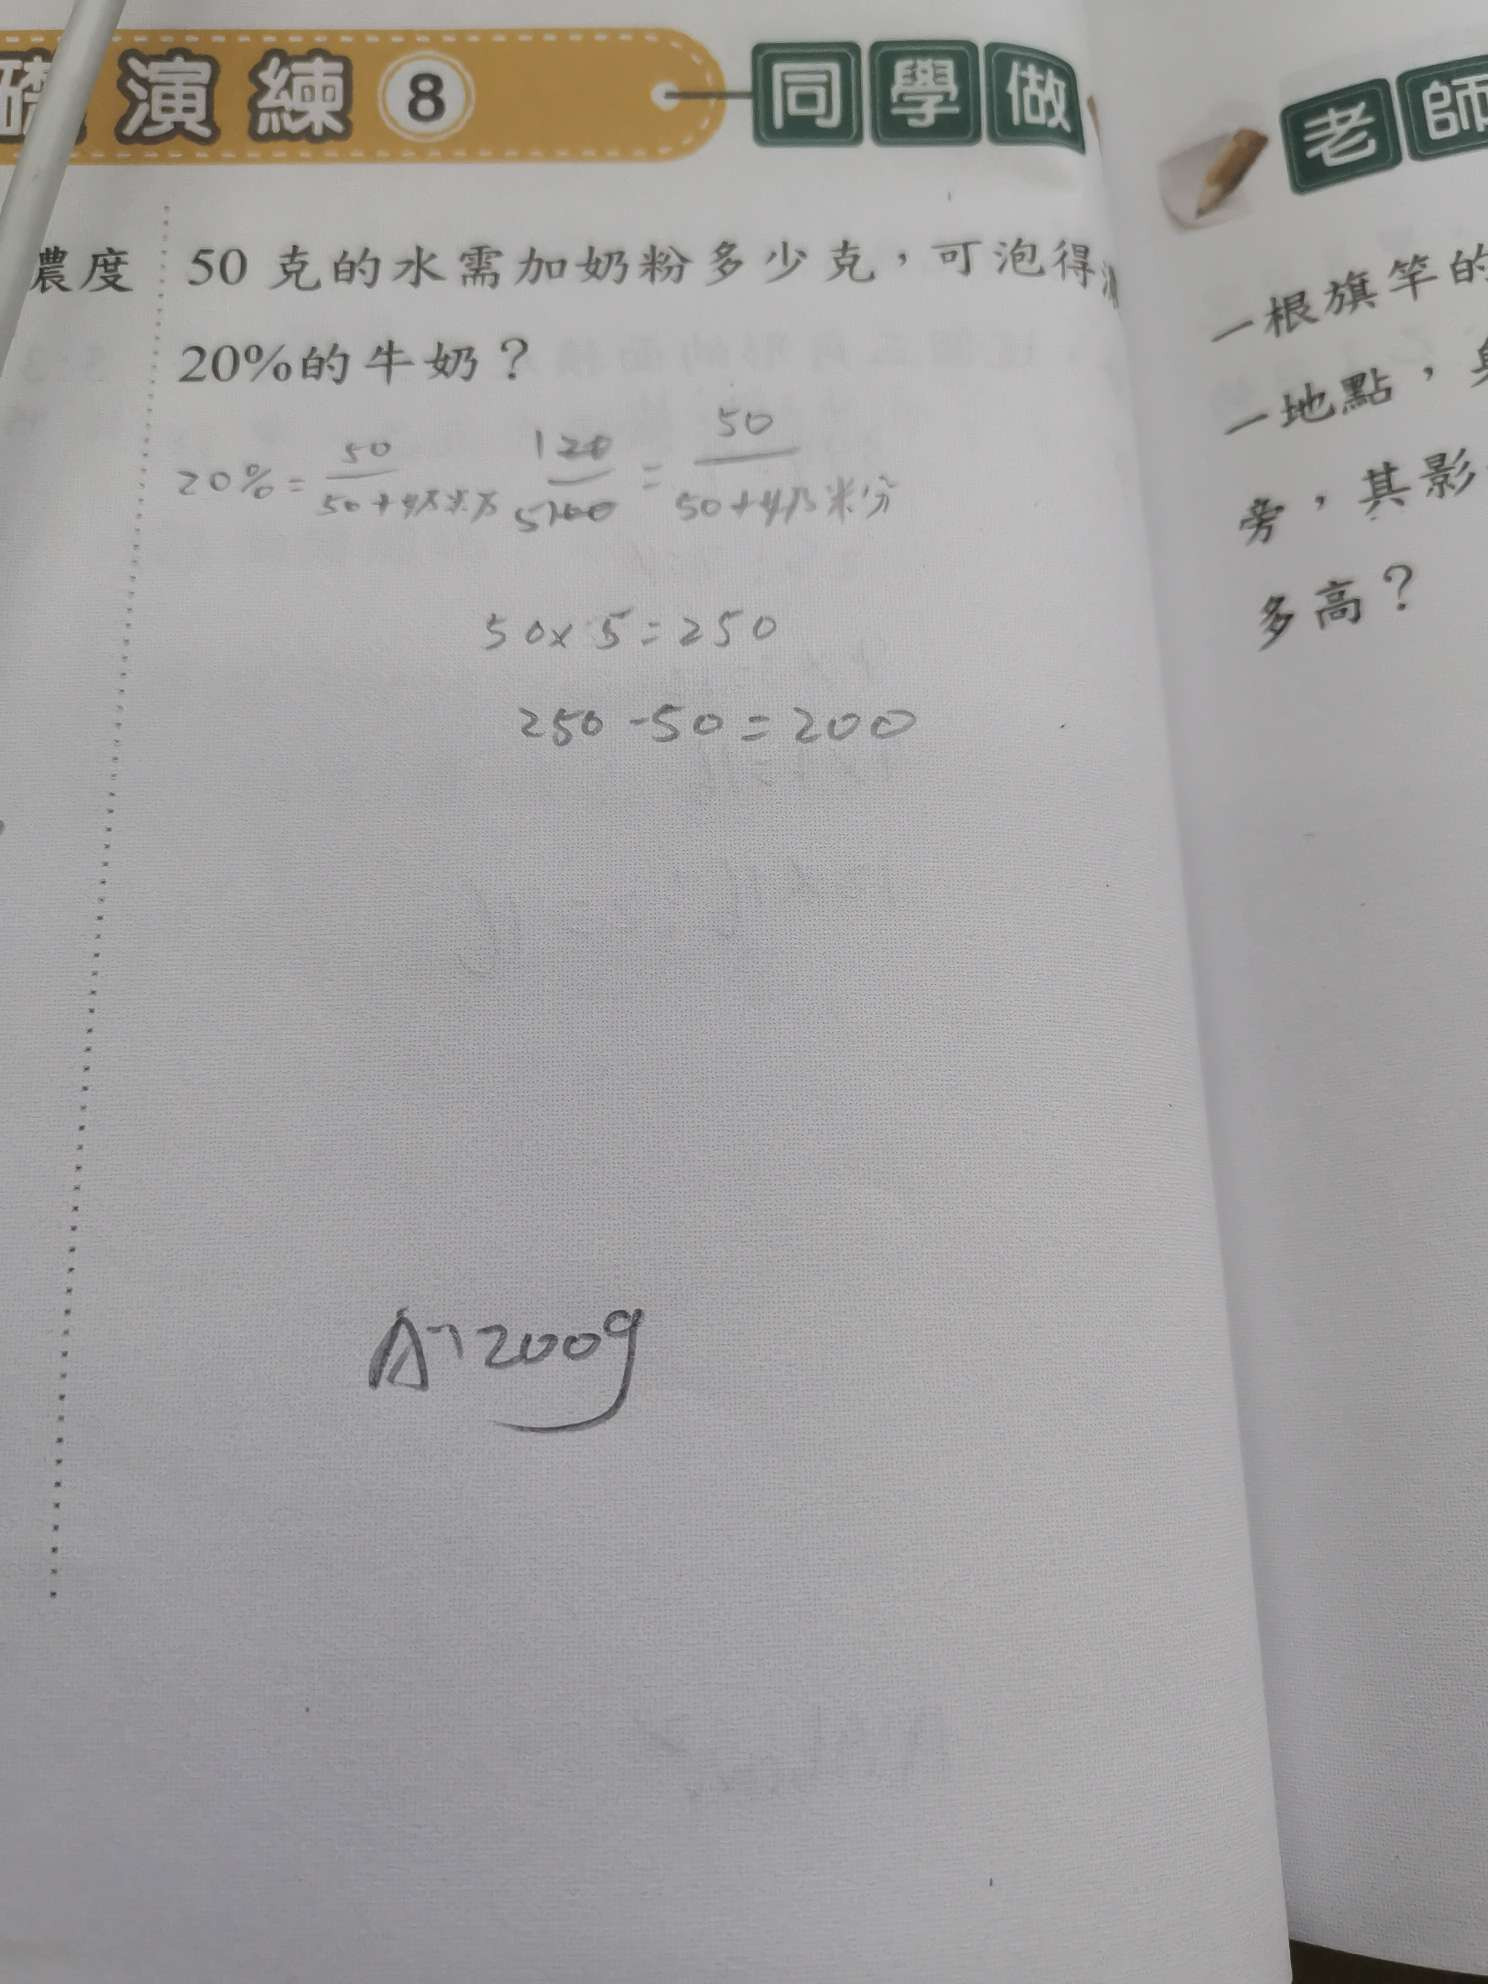 礎演練 8 同學做
濃度
50 克的水需加奶粉多少克，可泡得
20%的牛奶？
20% = 50/50+奶粉 120/5100 = 50/50+奶粉
50×5=250
250-50=200
A:200g
老師
一根旗竿的
一地點，
旁，其影
多高？